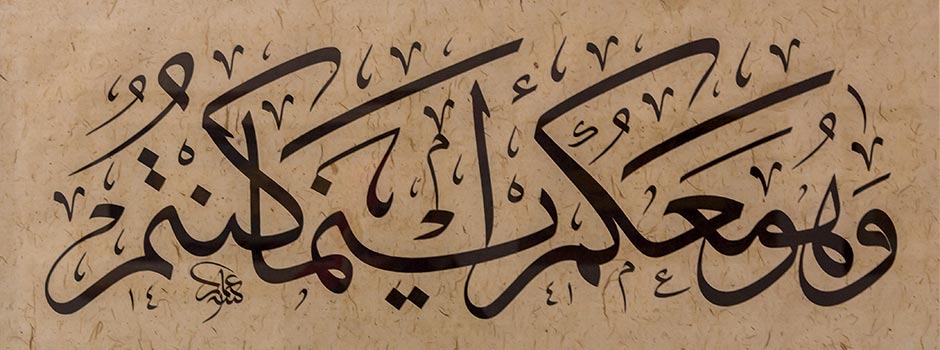 وَهُوَ مَعَكُمْ أَيْنَ مَا كُنْتُمْ
٤١ ١٤